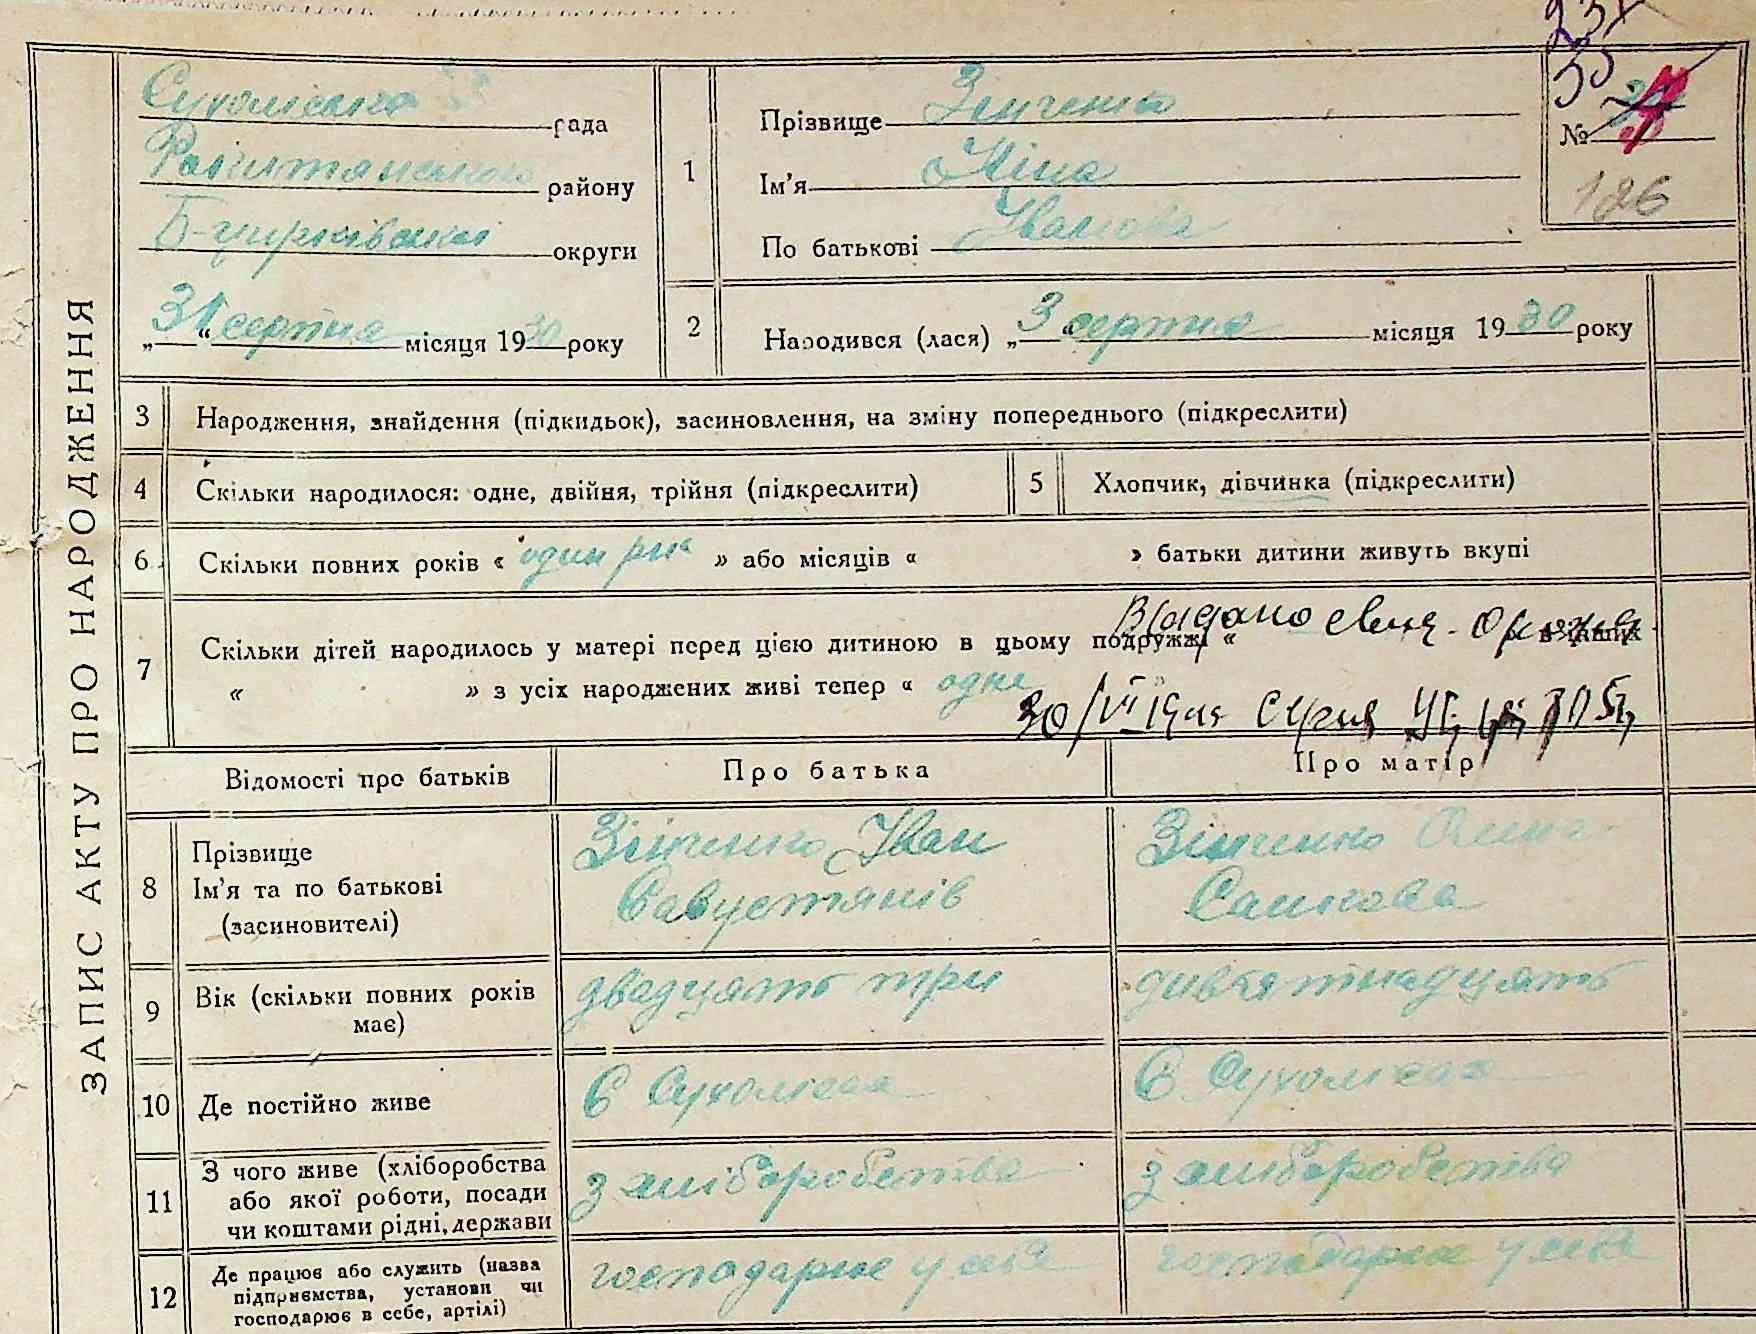 ЗАПИС АКТУ ПРО НАРОДЖЕННЯ
Сухоліська рада
Рокитянського району
Б-Церківської округи
„31“ серпня місяця 1930 року
№
126
1
Прізвище Зінченко
Ім'я Ніна
По батькові Іванова
2
Народився (лася) „3“ серпня місяця 1930 року
3 Народження, знайдення (підкидьок), засиновлення, на зміну попереднього (підкреслити)
4 Скільки народилося: одне, двійня, трійня (підкреслити)
5 Хлопчик, дівчинка (підкреслити)
6 Скільки повних років « один рік » або місяців « » батьки дитини живуть вкупі
7 Скільки дітей народилось у матері перед цією дитиною в цьому подружжі « в інших
« » з усіх народжених живі тепер « одне
30/VI
Відомості про батьків
Про батька
Про матір
8 Прізвище
Ім'я та по батькові
(засиновителі)
Зінченко Іван
Савустянів
Зінченко
Сашкова
9 Вік (скільки повних років
має)
двадцять три
девятнадцять
10 Де постійно живе
С Сухоліса
С Сухоліса
11 З чого живе (хліборобства
або якої роботи, посади
чи коштами рідні, держави
з хліборобства
з хліборобства
12 Де працює або служить (назва
підприємства, установи чи
господарює в себе, артілі)
господарює у себе
господарює у себе